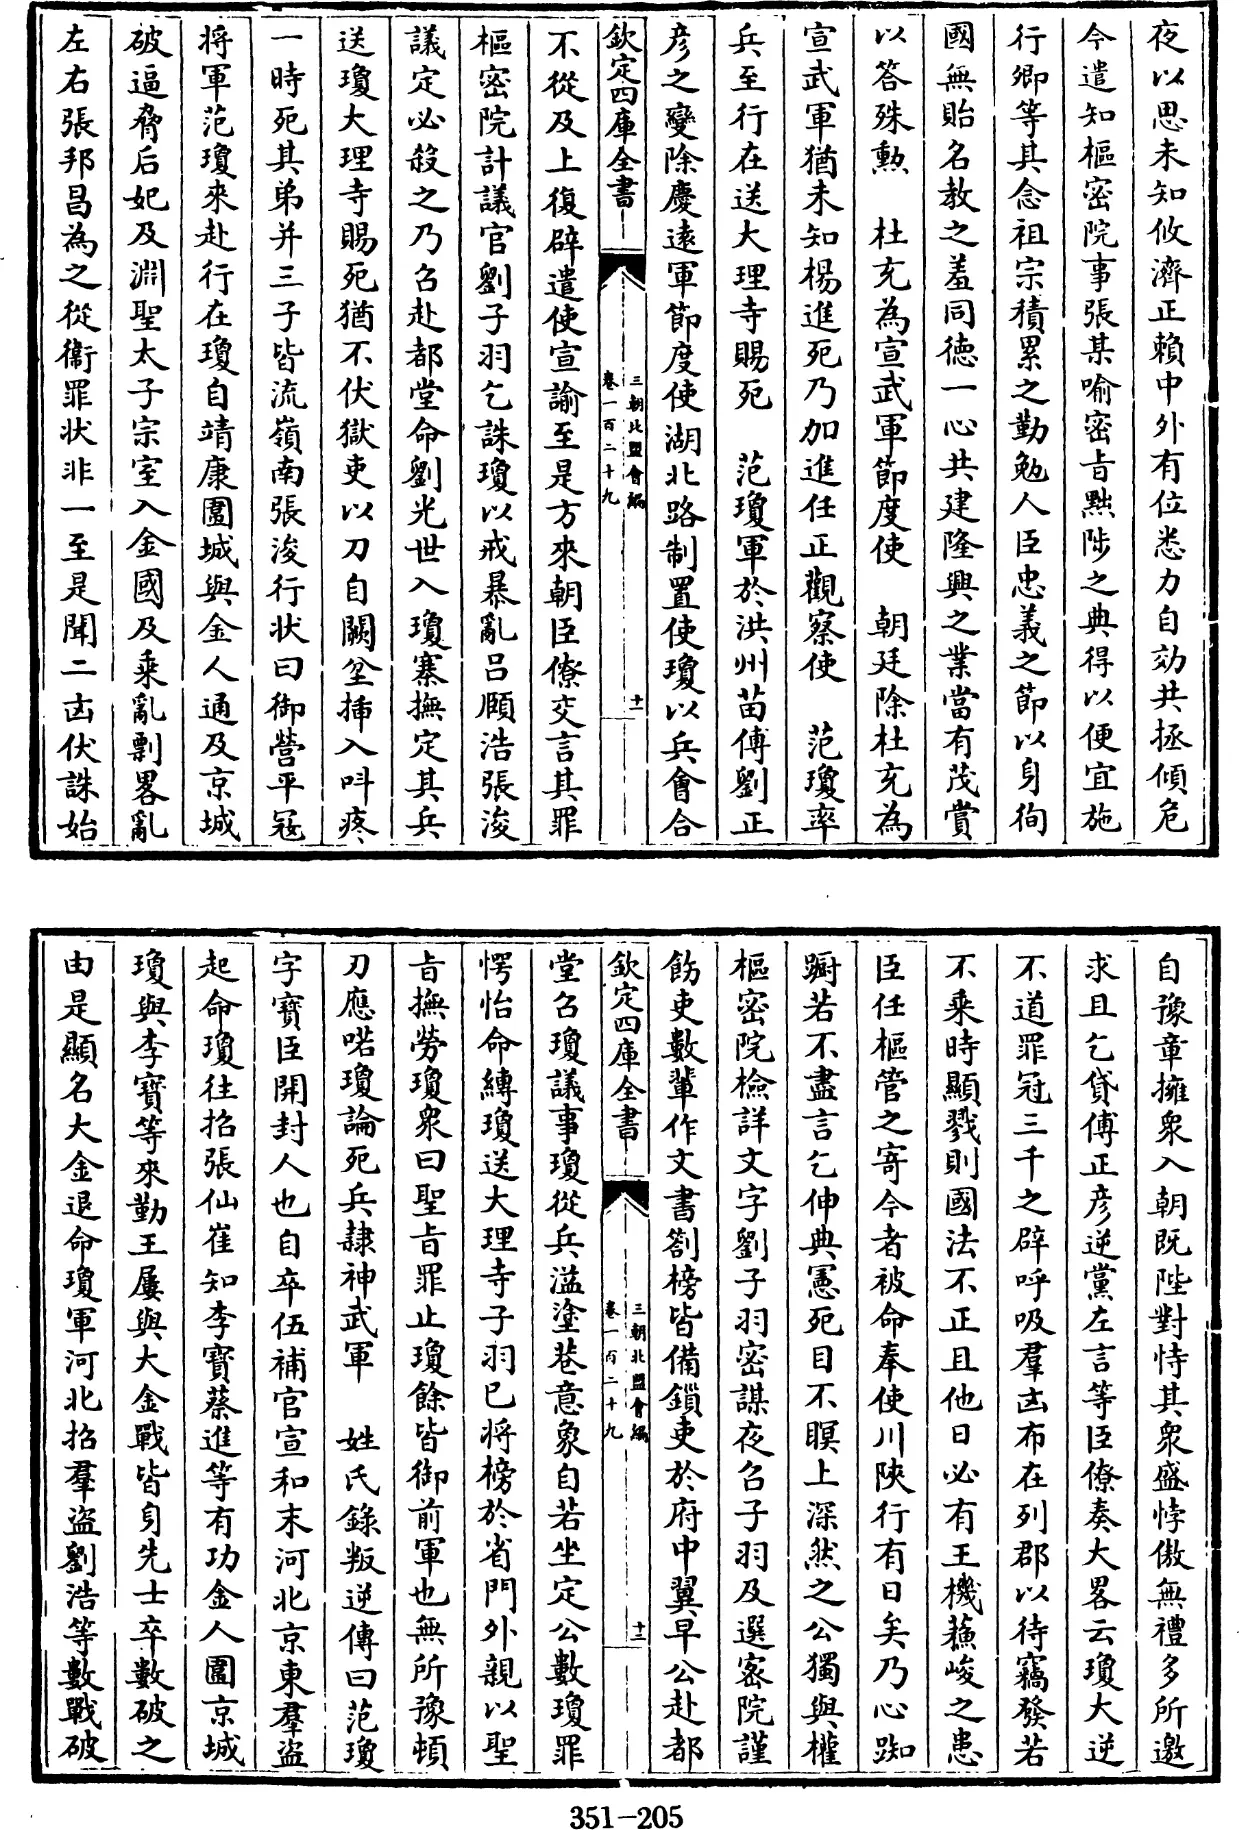 夜以思未知攸濟正賴中外有位悉力自効共拯傾危
今遣知樞密院事張某喻密㫖黜陟之典得以便宜施
行卿等其念祖宗積累之勤勉人臣忠義之節以身徇
國無貽名教之羞同徳一心共建隆興之業當有茂賞
以答殊勲　杜充為宣武軍節度使　朝廷除杜充為
宣武軍猶未知楊進死乃加進任正觀察使　范瓊率
兵至行在送大理寺賜死　范瓊軍於洪州苗傅劉正
彦之變除慶遠軍節度使湖北路制置使瓊以兵會合
欽定四庫全書
三朝北盟會編
卷一百二十九
十一
不從及上復辟遣使宣諭至是方來朝臣僚交言其罪
樞密院計議官劉子羽乞誅瓊以戒暴亂吕頤浩張浚
議定必殺之乃召赴都堂命劉光世入瓊寨撫定其兵
送瓊大理寺賜死猶不伏獄吏以刀自闕盆挿入呌疼
一時死其弟并三子皆流嶺南張浚行狀曰御營平冦
将軍范瓊來赴行在瓊自靖康圍城與金人通及京城
破逼脅后妃及淵聖太子宗室入金國及乗亂剽畧亂
左右張邦昌為之從衞罪状非一至是聞二凶伏誅始
自豫章擁衆入朝既陛對恃其衆盛悖傲無禮多所邀
求且乞貸傅正彦逆黨左言等臣僚奏大畧云瓊大逆
不道罪冠三千之辟呼吸羣凶布在列郡以待竊發若
不乗時顯戮則國法不正且他日必有王機蘓峻之患
臣任樞管之寄今者被命奉使川陜行有日矣乃心踟
蹰若不盡言乞伸典憲死目不瞑上深然之公獨與權
樞密院檢詳文字劉子羽密謀夜召子羽及選密院謹
飭吏數輩作文書劄榜皆備鎖吏於府中翼早公赴都
欽定四庫全書
三朝北盟會編
卷一百二十九
十二
堂召瓊議事瓊從兵溢塗巷意象自若坐定公數瓊罪
愕怡命縛瓊送大理寺子羽已將榜於省門外親以聖
㫖撫勞瓊衆曰聖㫖罪止瓊餘皆御前軍也無所豫頓
刀應喏瓊論死兵隷神武軍　姓氏錄叛逆傳曰范瓊
字寶臣開封人也自卒伍補官宣和末河北京東羣盗
起命瓊往招張仙崔知李寳蔡進等有功金人圍京城
瓊與李寳等來勤王屢與大金戰皆身先士卒數破之
由是顯名大金退命瓊軍河北招羣盗劉浩等數戰破
351-205